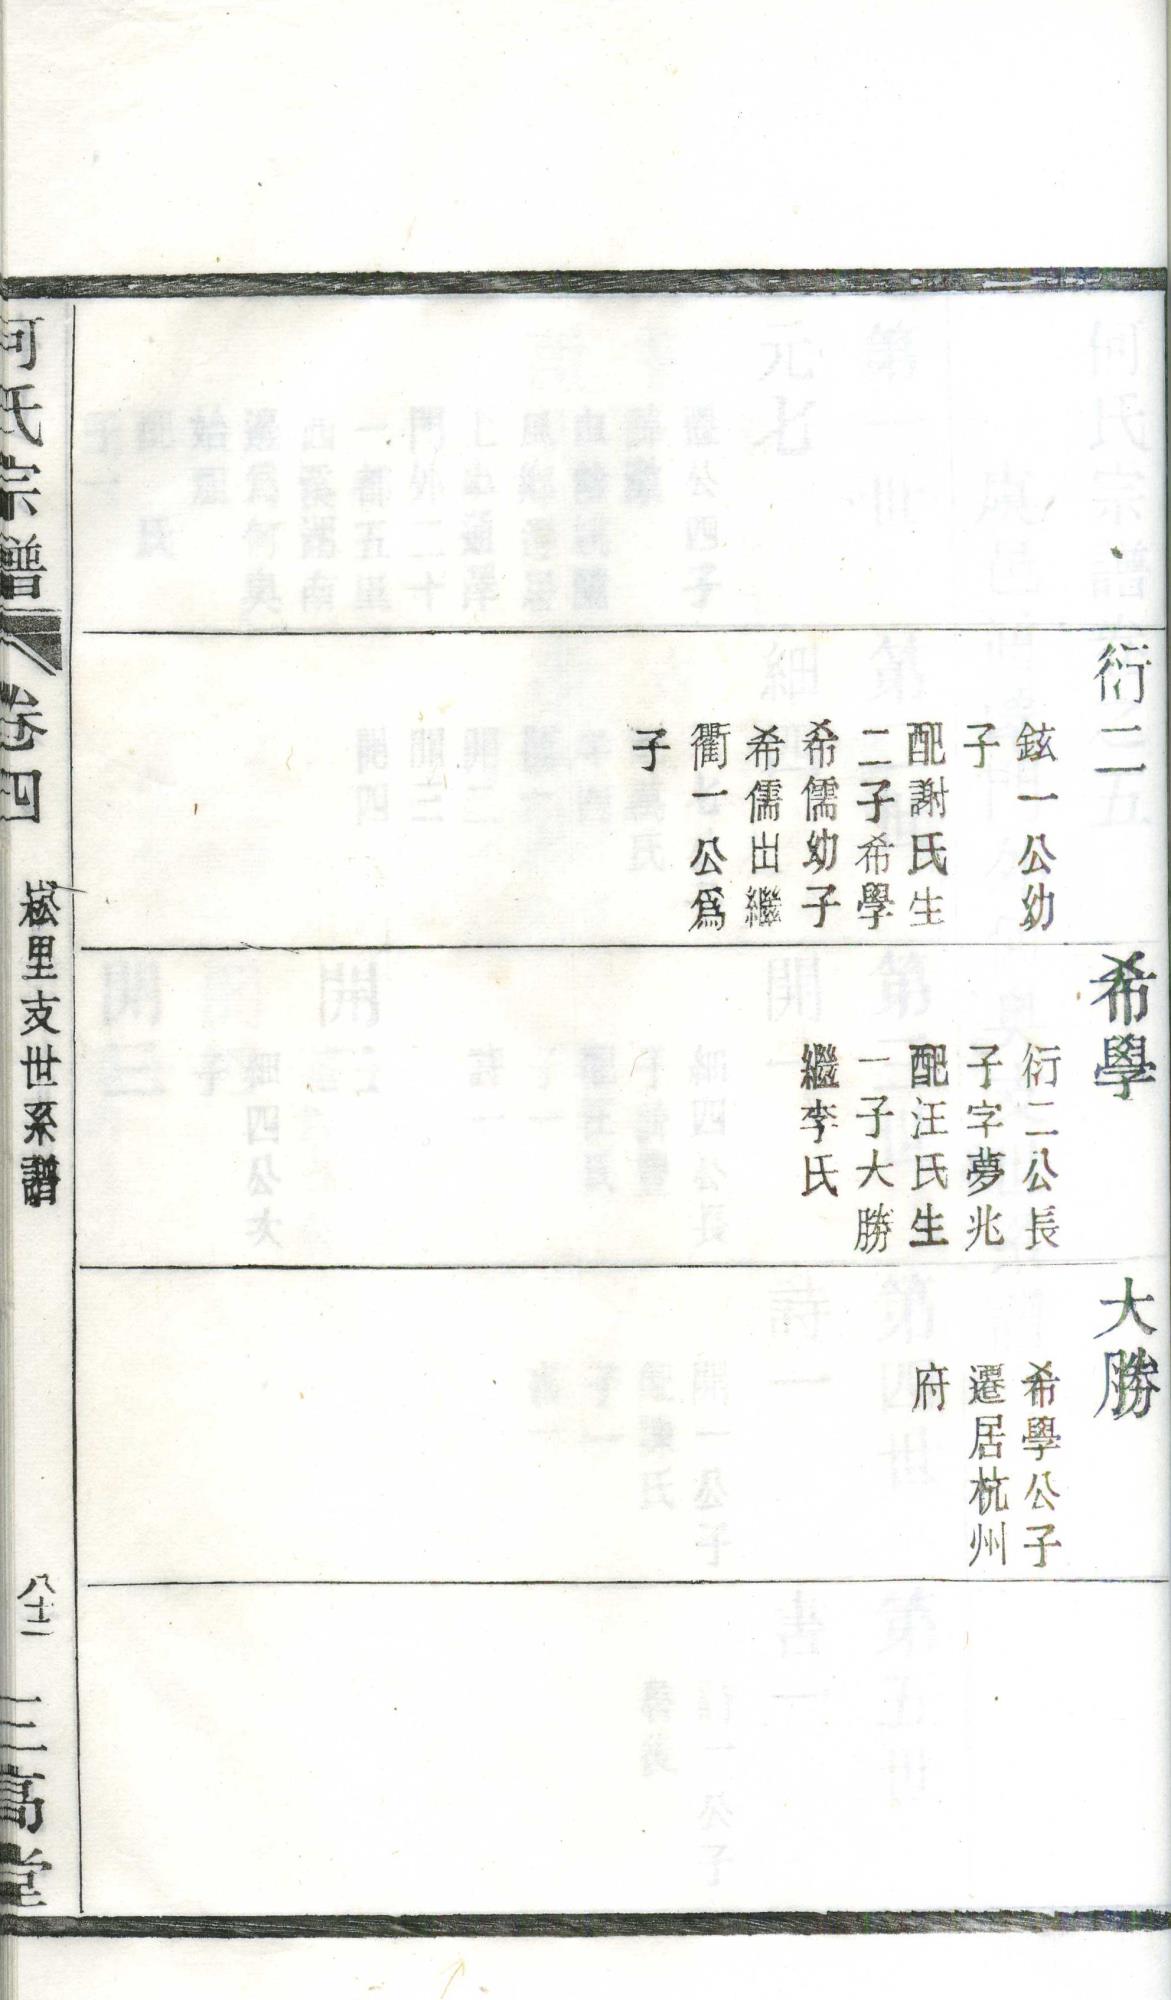 衍二
鉉一公幼
子
配謝氏生
二子希學
希儒幼子
希儒出繼
衢一公爲
子
希學
衍二公長
子字夢兆
配汪氏生
一子大勝
繼李氏
大勝
希學公子
遷居杭州
府
何氏宗譜
卷四
崧里支世系譜
八十一
三高堂